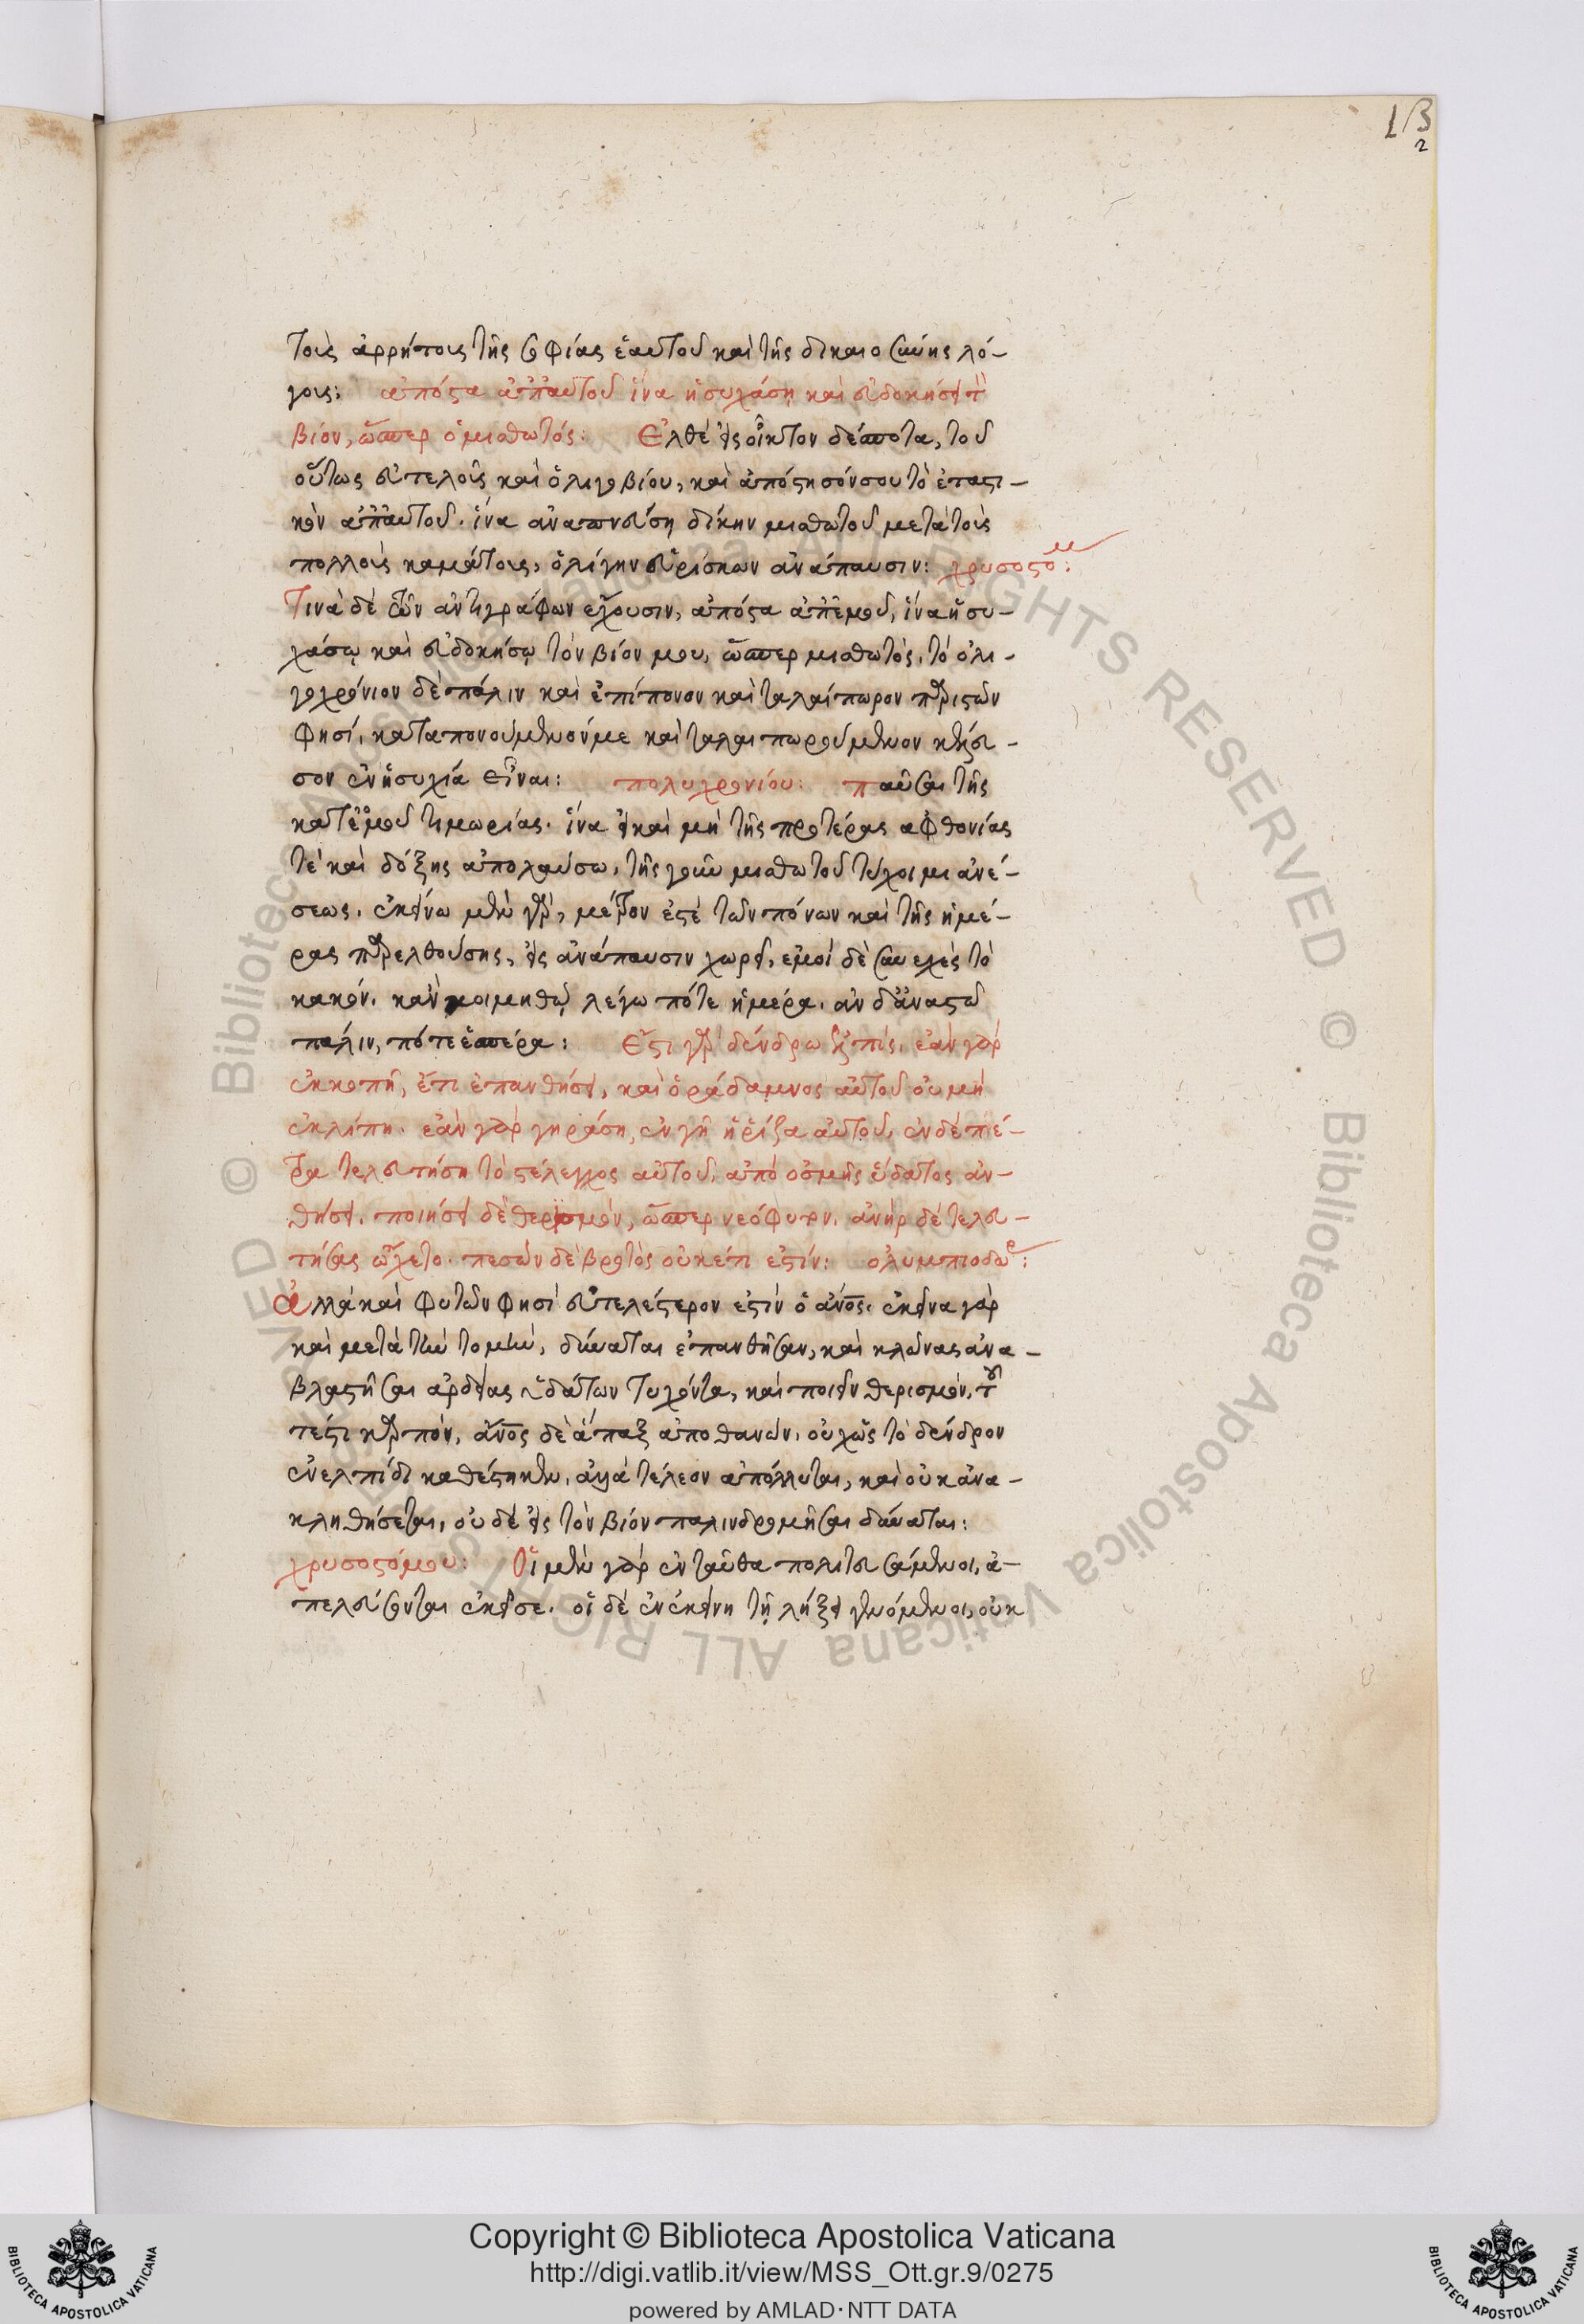 1β
2
τοὺς ἀρρήτους τῆς σοφίας ἑαυτοῦ καὶ τῆς δικαιοσύνης λό-
γους: ἀπόστα ἀπ' αὐτοῦ ἵνα ἡσυχάση καὶ εὐδοκήσει τὸν
βίον, ὥσπερ ὁ μισθωτός: Ἐλθὲ εἰς οἶκτον δέσποτα, τοῦ
οὕτως εὐτελοῦς καὶ ὀλιγοβίου, καὶ ἀπόστησόν σου τὸ ἐταστι-
κὸν ἀπ' αὐτοῦ. ἵνα ἀναπνεύση δίκην μισθωτοῦ μετὰ τοὺς
πολλοὺς καμάτους, ὀλίγην εὑρίσκων ἀνάπαυσιν: χρυσοστομ:
Τινὰ δὲ τῶν ἀντιγράφων ἔχουσιν, ἀπόστα ἀπ' ἐμοῦ, ἵνα ἡσυ-
χάσω καὶ εὐδοκήσω τὸν βίον μου, ὥσπερ μισθωτὸς. τὸ ὀλι-
γοχρόνιον δὲ πάλιν καὶ ἐπίπονον καὶ ταλαίπωρον παριστῶν
φησί, καταπονούμενόν με καὶ ταλαιπωρούμενον κέλευ-
σον ἐν ἡσυχία εἶναι: πολυχρονίου: παῦσαι τῆς
κατ' ἐμοῦ τιμωρίας. ἵνα εἰ καὶ μὴ τῆς προτέρας ἀφθονίας
τὲ καὶ δόξης ἀπολαύσω, τῆς γοῦν μισθωτοῦ τύχοιμι ἀνέ-
σεως. ἐκείνω μὲν γὰρ, μέτρον ἐστὶ τῶν πόνων καὶ τῆς ἡμέ-
ρας παρελθούσης, εἰς ἀνάπαυσιν χωρεῖ, ἐμοὶ δὲ συνεχὲς τὸ
κακόν. κἂν κοιμηθῶ λέγω πότε ἡμέρα. ἂν δ' ἀναστῶ
πάλιν, πότε ἑσπέρα: Ἔστι γὰρ δένδρω ἐλπίς. ἐὰν γὰρ
ἐκκοπῆ, ἔτι ἐπανθήσει, καὶ ὁ ῥάδαμνος αὐτοῦ οὐ μὴ
ἐκλίπη. ἐὰν γὰρ γηράση ἐν γῆ ἡ ῥίζα αὐτοῦ, ἐν δὲ πέ-
τρα τελευτήση τὸ στέλεχος αὐτοῦ, ἀπὸ ὀσμῆς ὕδατος ἀν-
θήσει. ποιήσει δὲ θερισμόν, ὥσπερ νεόφυτον. ἀνὴρ δὲ τελευ-
τήσας ᾤχετο. πεσὼν δὲ βροτὸς οὐκέτι ἐστίν: ὀλυμπιοδώρ:
ἀλλὰ καὶ φυτῶν φησὶ εὐτελέστερον ἐστὶν ὁ ἄνος. ἐκεῖνα γὰρ
καὶ μετὰ τὴν τομὴν, δύναται ἐπανθῆσαι, καὶ κλῶνας ἀνα-
βλαστῆσαι ἀρδείας ὑδάτων τυχόντα, καὶ ποιεῖν θερισμόν, τοῦ
τέστι καρπόν, ἄνος δὲ ἅπαξ ἀποθανών, οὐχ ὡς τὸ δένδρον
ἐν ἐλπίδι καθέστηκεν. ἀλλὰ τέλεον ἀπόλλυται, καὶ οὐκ ἀνα-
κληθήσεται, οὐδὲ εἰς τὸν βίον παλινδρομῆσαι δύναται:
χρυσοστόμου: Οἱ μὲν γὰρ ἐνταῦθα πολιτευσάμενοι, ἀ-
πελεύσονται ἐκεῖσε. οἱ δὲ ἐν ἐκείνη τῆ λήξει γενόμενοι, οὐκ
Copyright © Biblioteca Apostolica Vaticana
http://digi.vatlib.it/view/MSS_Ott.gr.9/0275
powered by AMLAD·NTT DATA